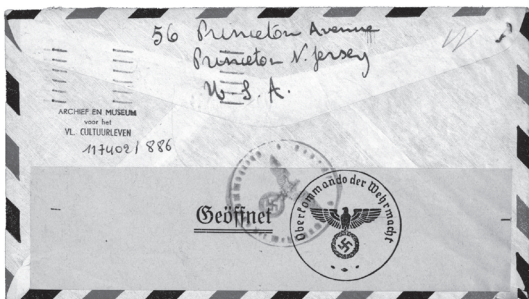 56 Princeton Avenue
Princeton N. Jersey
U. S. A.
ARCHIEF EN MUSEUM
voor het
VL. CULTUURLEVEN
117402/886
Geöffnet
Oberkommando der Wehrmacht